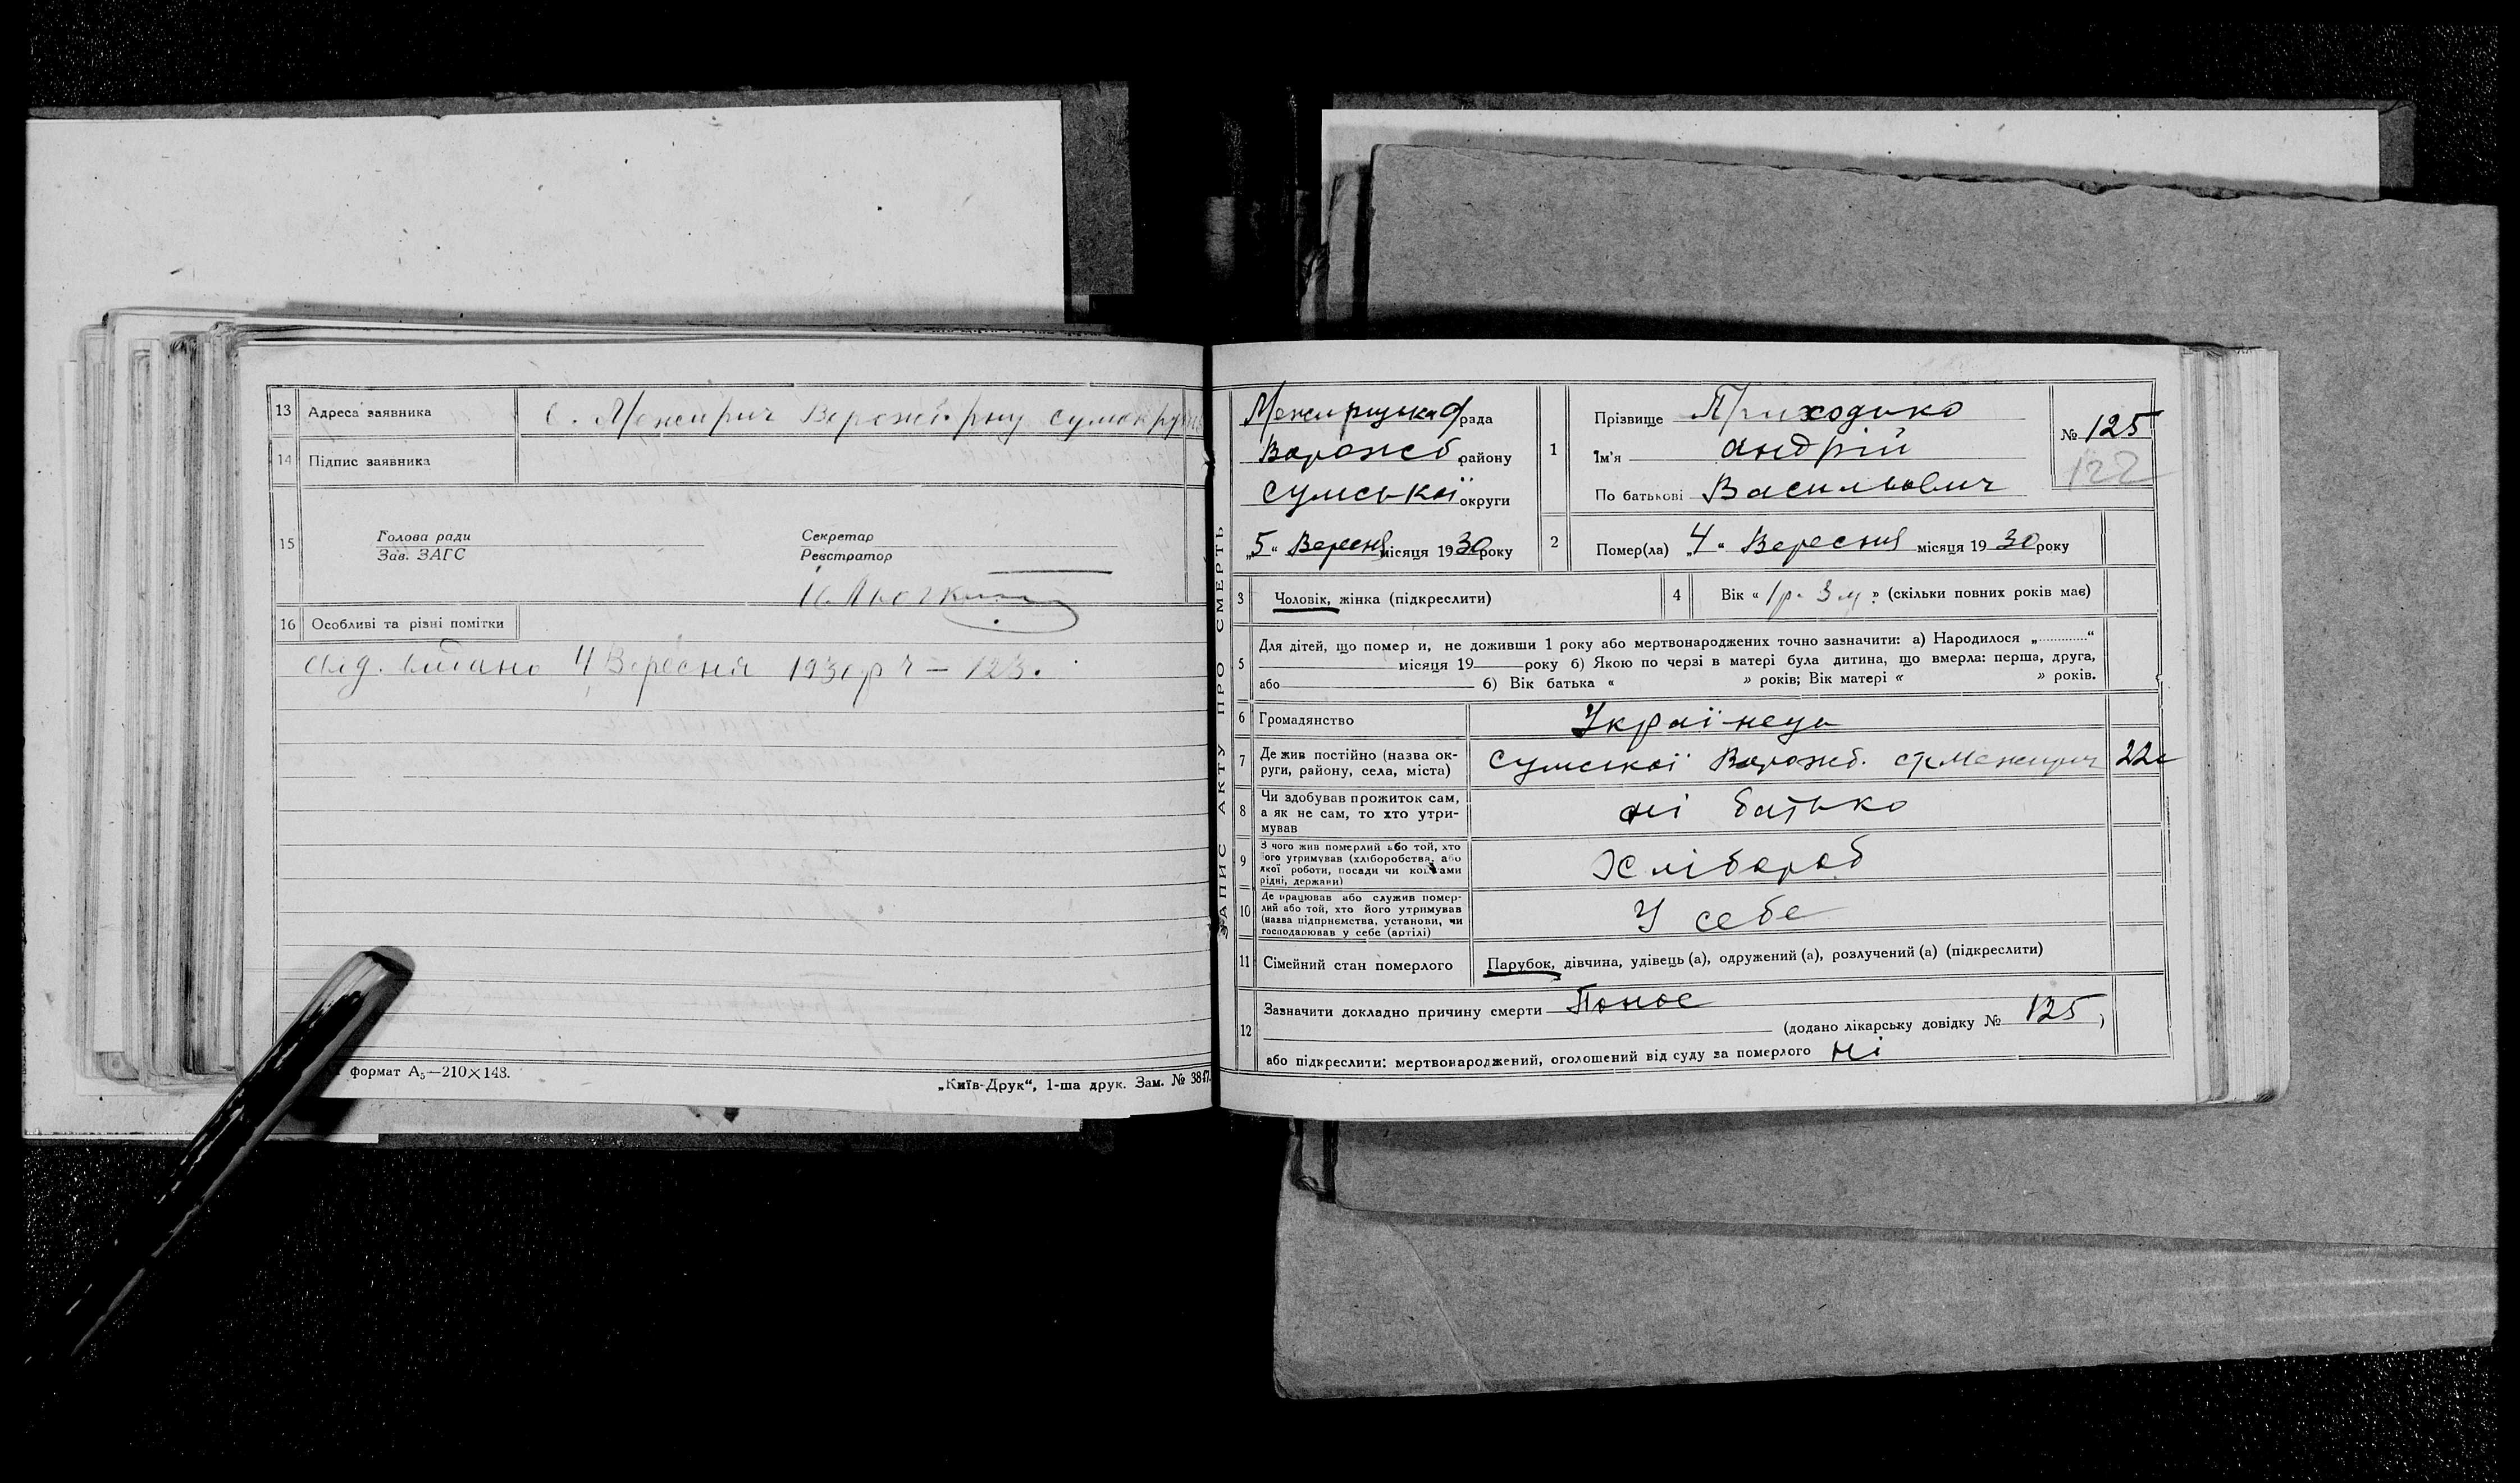 13 Адреса заявника С. Межирич Ворожб. р-ну Сумок
14 Підпис заявника
15 Голова ради Секретар
Зав. ЗАГС Реєстратор
16 Особливі та різні помітки
видано 4 Вересня 1930 р № 123.
формат А₅—210×148.
„Київ-Друк“, 1-ша друк. Зам. № 3847.
ЗАПИС АКТУ ПРО СМЕРТЬ
Межиріцька рада
Ворожб району
Сумської округи
„5“ Вересня місяця 1930 року
1 Прізвище Приходько
Ім'я Андрій
По батькові Васильович
№ 125
122
2 Помер(ла) „4“ Вересня місяця 1930 року
3 Чоловік, жінка (підкреслити)
4 Вік « 1 р. 3 м » (скільки повних років має)
5 Для дітей, що помер и, не доживши 1 року або мертвонароджених точно зазначити: а) Народилося „ “
місяця 19 року б) Якою по черзі в матері була дитина, що вмерла: перша, друга,
або б) Вік батька « » років; Вік матері « » років.
6 Громадянство Українець
7 Де жив постійно (назва ок-
руги, району, села, міста) Сумської Ворожб. Межирич
8 Чи здобував прожиток сам,
а як не сам, то хто утри-
мував ні батько
9 З чого жив померлий або той, хто
його утримував (хліборобства, або
якої роботи, посади чи коштами
рідні, держави) Хлібороб
10 Де працював або служив помер-
лий або той, хто його утримував
(назва підприємства, установи, чи
господарював у себе (артілі) У себе
11 Сімейний стан померлого Парубок, дівчина, удівець (а), одружений (а), розлучений (а) (підкреслити)
12 Зазначити докладно причину смерти Понос
(додано лікарську довідку № 125)
або підкреслити: мертвонароджений, оголошений від суду за померлого Ні